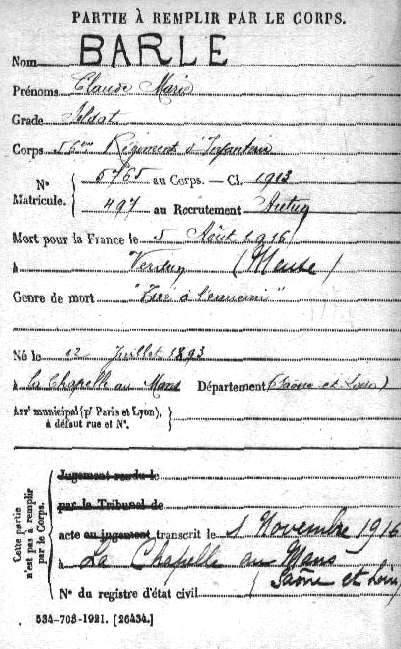 PARTIE À REMPLIR PAR LE CORPS.
Nom BARLE
Prénoms Claude Marie
Grade Soldat
Corps 56em Régiment d'Infanterie
N° Matricule. { 5765 au Corps. — Cl. 1913
497 au Recrutement Autun
Mort pour la France le 5 Août 1916
à Verdun (Meuse)
Genre de mort "Tué à l'ennemi"
Né le 12 Juillet 1893
à La Chapelle au Mans Département (Saône et Loire)
Arrt municipal (pr Paris et Lyon), à défaut rue et N°. }
Cette partie n'est pas à remplir par le Corps.
Jugement rendu le
par le Tribunal de
acte ou jugement transcrit le Novembre 1916
à La Chapelle au Mans
(Saône et Loire)
N° du registre d'état civil
534-708-1921. [26434.]